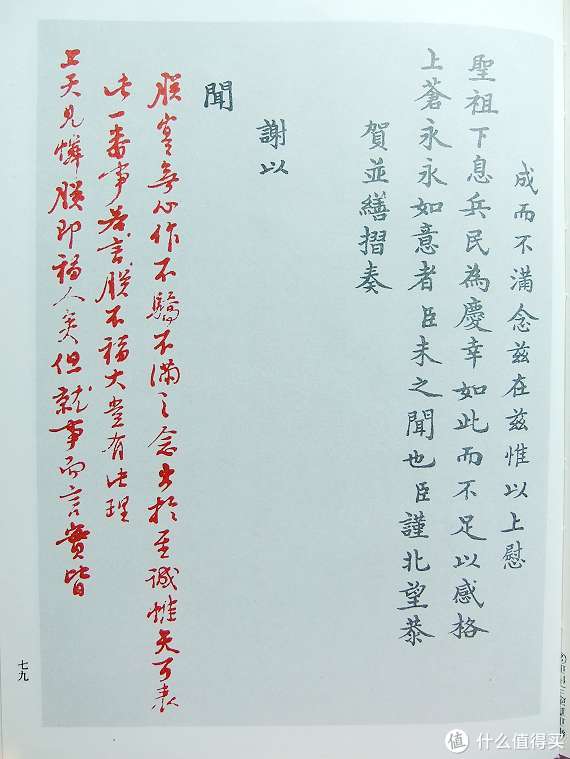 成而不滿念兹在兹惟以上慰
聖祖下息兵民為慶幸如此而不足以感格
上蒼永永如意者臣未之聞也臣謹北望恭
賀並繕摺奏
謝以
聞
朕實無心作不驕不滿之念出於至誠惟天可表
此一番事若言朕不福大豈有此理
上天見憐朕即福人矣但就事而言實皆
七九
值 什么值得买